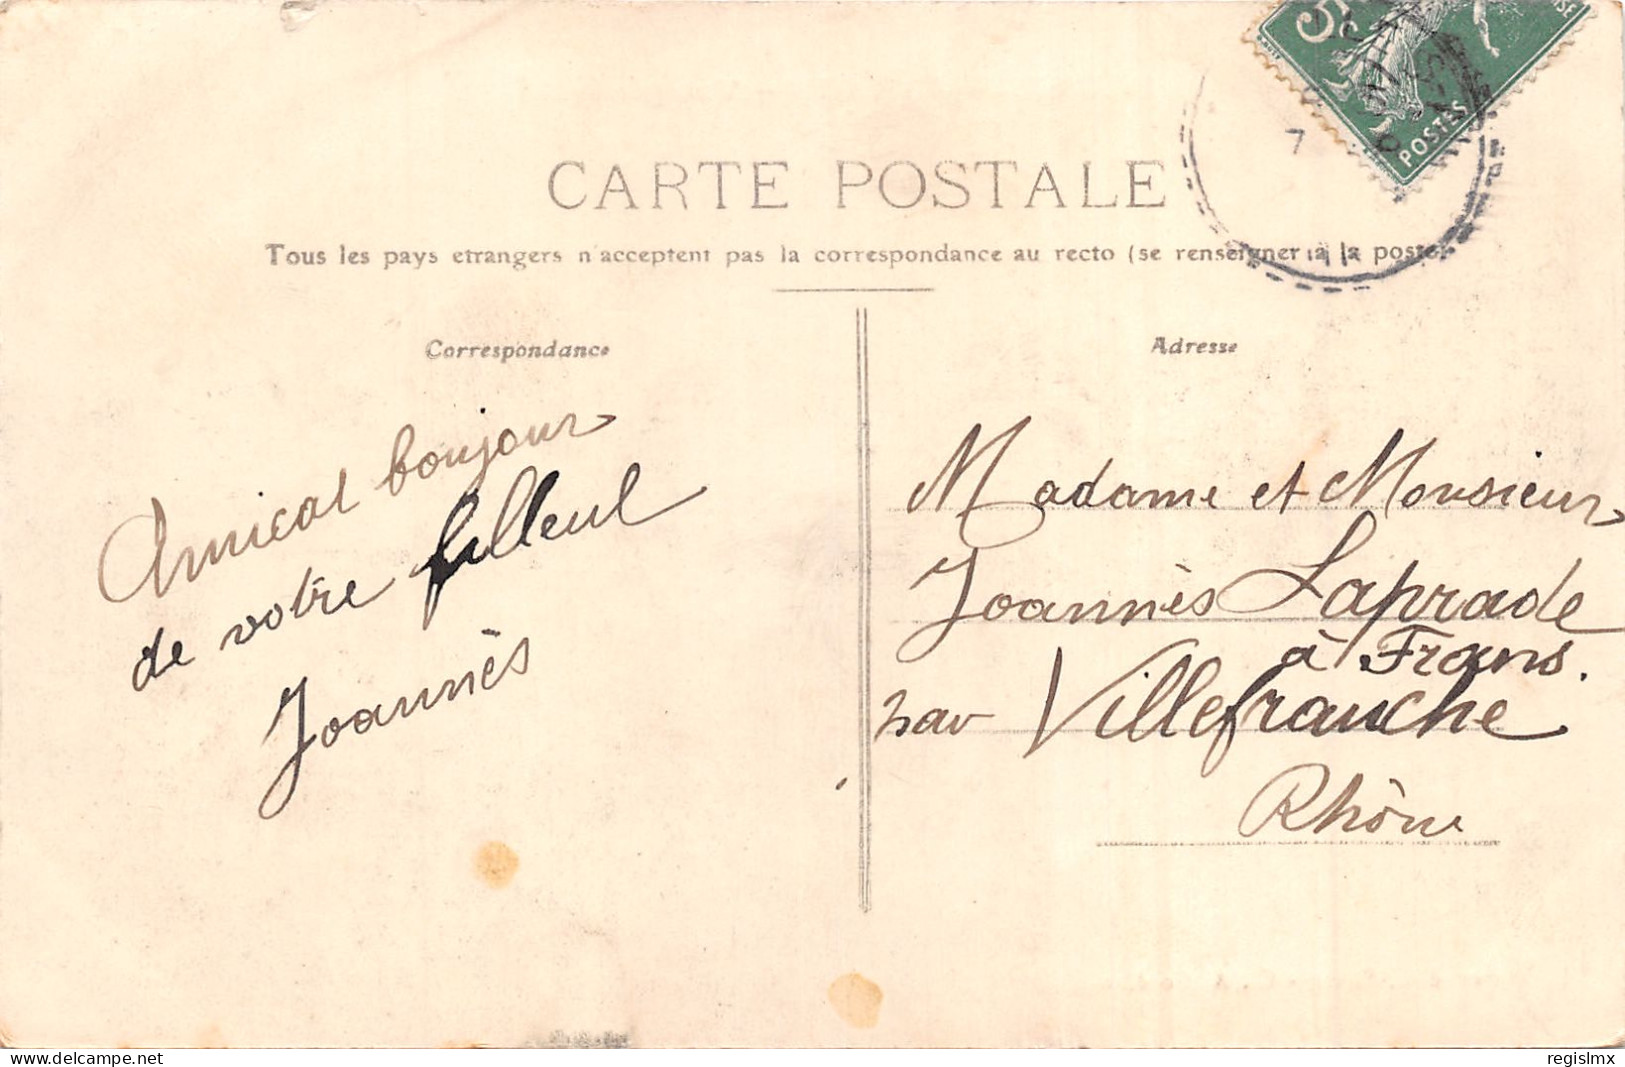 CARTE POSTALE
Tous les pays etrangers n'acceptent pas la correspondance au recto (se renseigner à la poste)
Correspondance
Amical bonjour
de votre filleul
Joannès
Adresse
Madame et Monsieur
Joannès Laprade
à Frans.
par Villefranche
Rhône
5
POSTES
7
www.delcampe.net
regislmx